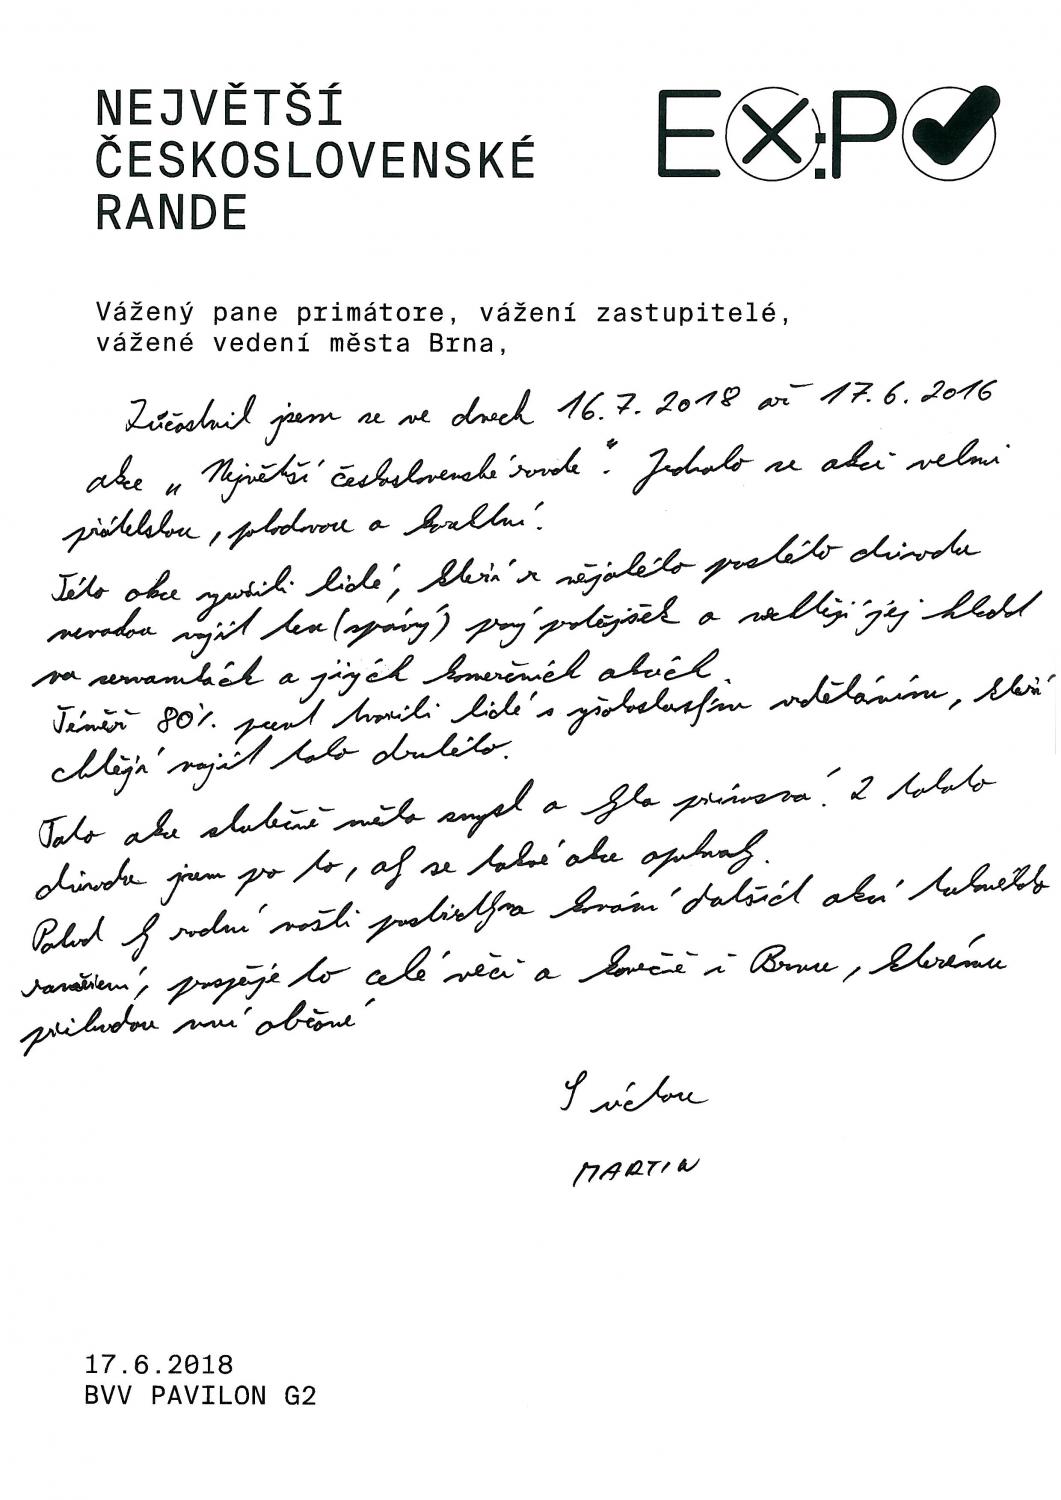 NEJVĚTŠÍ
ČESKOSLOVENSKÉ
RANDE
EXPO
Vážený pane primátore, vážení zastupitelé,
vážené vedení města Brna,
Zúčastnil jsem se ve dnech 16.7.2018 až 17.6.2016
akce „Největší československé rande". Jednalo se akci velmi
přátelskou, pohodovou a kvalitní.
Této akce lidé, kteří z nějakého důvodu
nemohou najít ten (správný) protějšek a nechtějí jej hledat
na seznamkách a jiných komerčních akcích.
Téměř 80% tvořili lidé s vysokoškolským vzděláním, kteří
chtějí najít toho druhého.
Tato akce skutečně měla smysl a byla přínosná. Z tohoto
důvodu jsem pro to, aby se takové akce opakovaly.
Pokud by radní našli konání dalších akcí takového
zaměření, prospěje to celé věci a konečně i Brnu, kterému
přibudou noví občané
S úctou
MARTIN
17.6.2018
BVV PAVILON G2